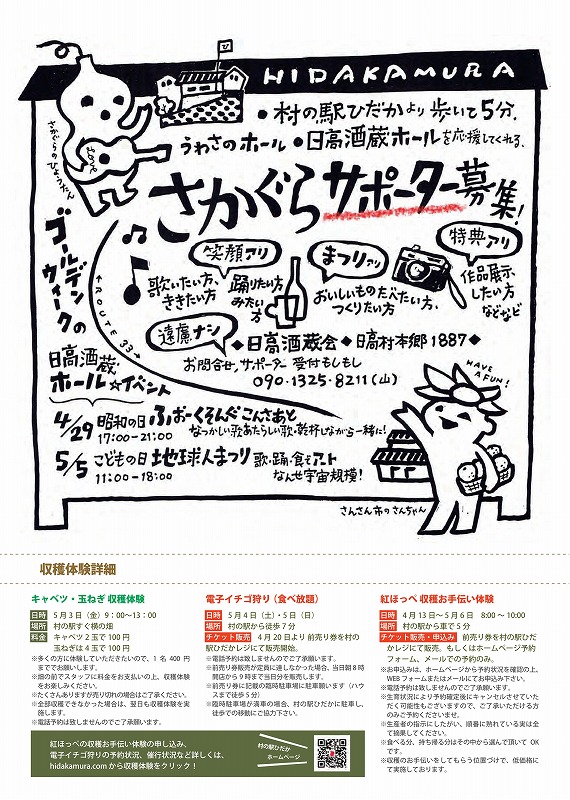 HIDAKAMURA
さかぐらのひょうたん
•村の駅ひだかより歩いて5分.
うわさのホール•日高酒蔵ホールを応援してくれる、
さかぐらサポーター募集!
笑顔アリ
歌いたい方、
ききたい方
踊りたい方
みたい方
まつりアリ
おいしいものたべたい方、
つくりたい方
特典アリ
作品展示
したい方
などなど
遠慮ナシ
◆日高酒蔵会◆日高村本郷1887◆
お問合せ、サポーター受付もしもし
090・1325・8211(山)
←ROUTE 33→
ゴールデン
ウィークの
日高酒蔵・
ホール☆イベント
HAVE
A FUN!
4/29 昭和の日 ふぉーくそんぐこんさあと
17:00-21:00 なつかしい歌あたらしい歌・乾杯しながら一緒に!
5/5 こどもの日 地球人まつり 歌・踊・食もアート
11:00-18:00 なんせ宇宙規模!
さんさん市のさんちゃん
収穫体験詳細
キャベツ・玉ねぎ 収穫体験
日時 5月3日(金)9:00〜13:00
場所 村の駅すぐ横の畑
料金 キャベツ2玉で100円
玉ねぎは4玉で100円
※多くの方に体験していただきたいので、1名400円
まででお願いします。
※畑の前でスタッフに料金をお支払いの上、収穫体験
をお楽しみください。
※たくさんありますが売り切れの場合はご了承ください。
※全部収穫できなかった場合は、翌日も収穫体験を実
施します。
※電話予約は致しませんのでご了承願います。
電子イチゴ狩り(食べ放題)
日時 5月4日(土)・5日(日)
場所 村の駅から徒歩7分
チケット販売 4月20日より前売り券を村の
駅ひだかレジにて販売開始。
※電話予約は致しませんのでご了承願います。
※前売り券販売が定員に達しなかった場合、当日朝8時
開店から9時まで当日分を販売します。
※前売り券に記載の臨時駐車場に駐車願います(ハウ
スまで徒歩5分)
※臨時駐車場が満車の場合、村の駅ひだかに駐車し、
徒歩での移動にご協力下さい。
紅ほっぺ 収穫お手伝い体験
日時 4月13日〜5月6日 8:00〜10:00
場所 村の駅から車で5分
チケット販売・申込み 前売り券を村の駅ひだ
かレジにて販売。もしくはホームページ予約
フォーム、メールでの予約のみ。
※お申込みは、ホームページから予約状況を確認の上、
WEBフォームまたはメールにてお申込み下さい。
※電話予約は致しませんのでご了承願います。
※生育状況により予約確定後にキャンセルさせていた
だく可能性もございますので、ご了承いただける方
のみご予約くださいませ。
※生産者の指示にしたがい、順番に熟れている実は全
て摘果してください。
※食べる分、持ち帰る分はその中から選んで頂いてOK
です。
※収穫のお手伝いをしてもらう位置づけで、低価格に
て実施しております。
紅ほっぺの収穫お手伝い体験の申し込み、
電子イチゴ狩りの予約状況、催行状況など詳しくは、
hidakamura.comから収穫体験をクリック!
村の駅ひだか
ホームページ